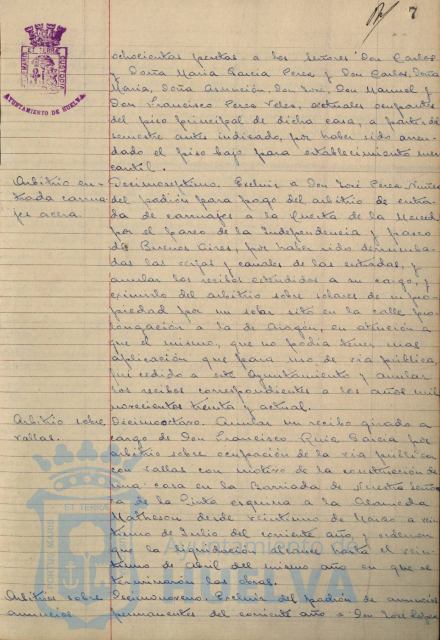 7
AYUNTAMIENTO DE HUELVA
ochocientas pesetas a los señores Don Carlos
y Doña Maria Garcia Perea y Don Carlos, Doña
Maria, Doña Asunción, Don José, Don Manuel y
Don Francisco Perea Velez, actuales ocupantes
del piso principal de dicha casa, a partir del
semestre antes indicado, por haber sido arren-
dado el piso bajo para establecimiento mer
cantil.
Arbitrio en-
trada carrua
jes acera.
Decimoseptimo. Excluir a Don José Perea Nuñez
del padrón para pago del arbitrio de entra
da de carruajes a la Huerta de la Merced
por el paseo de la Independencia y paseo
de Buenos Aires, por haber sido derrumba-
das las rejas y canales de las entradas, y
anular los recibos extendidos a su cargo, y
eximirlo del arbitrio sobre solares de su pro
piedad por un solar sito en la calle pro
longación a la de Aragón, en atención a
que el mismo, que no podia tener mas
aplicación que para uso de via pública,
fué cedido a este Ayuntamiento y anular
los recibos correspondientes a los años mil
novecientos treinta y actual.
Arbitrio sobre
vallas.
Decimooctavo. Anular un recibo girado a
cargo de Don Francisco Garcia por
arbitrio sobre ocupación de la via publica
con vallas con motivo de la construcción de
una casa en la Barriada de Nuestra Seño
ra de la Cinta esquina a la Alameda
Matheson desde veintiuno de Marzo a
de Julio del corriente año, y ordenar
que la liquidación alcance hasta el vein-
tiuno de Abril del mismo año en que se
terminaron las obras.
Arbitrio sobre
anuncios
Decimonoveno. Excluir del padrón de anuncios
permanentes del corriente año a Don José
Ayuntamiento de
HUELVA